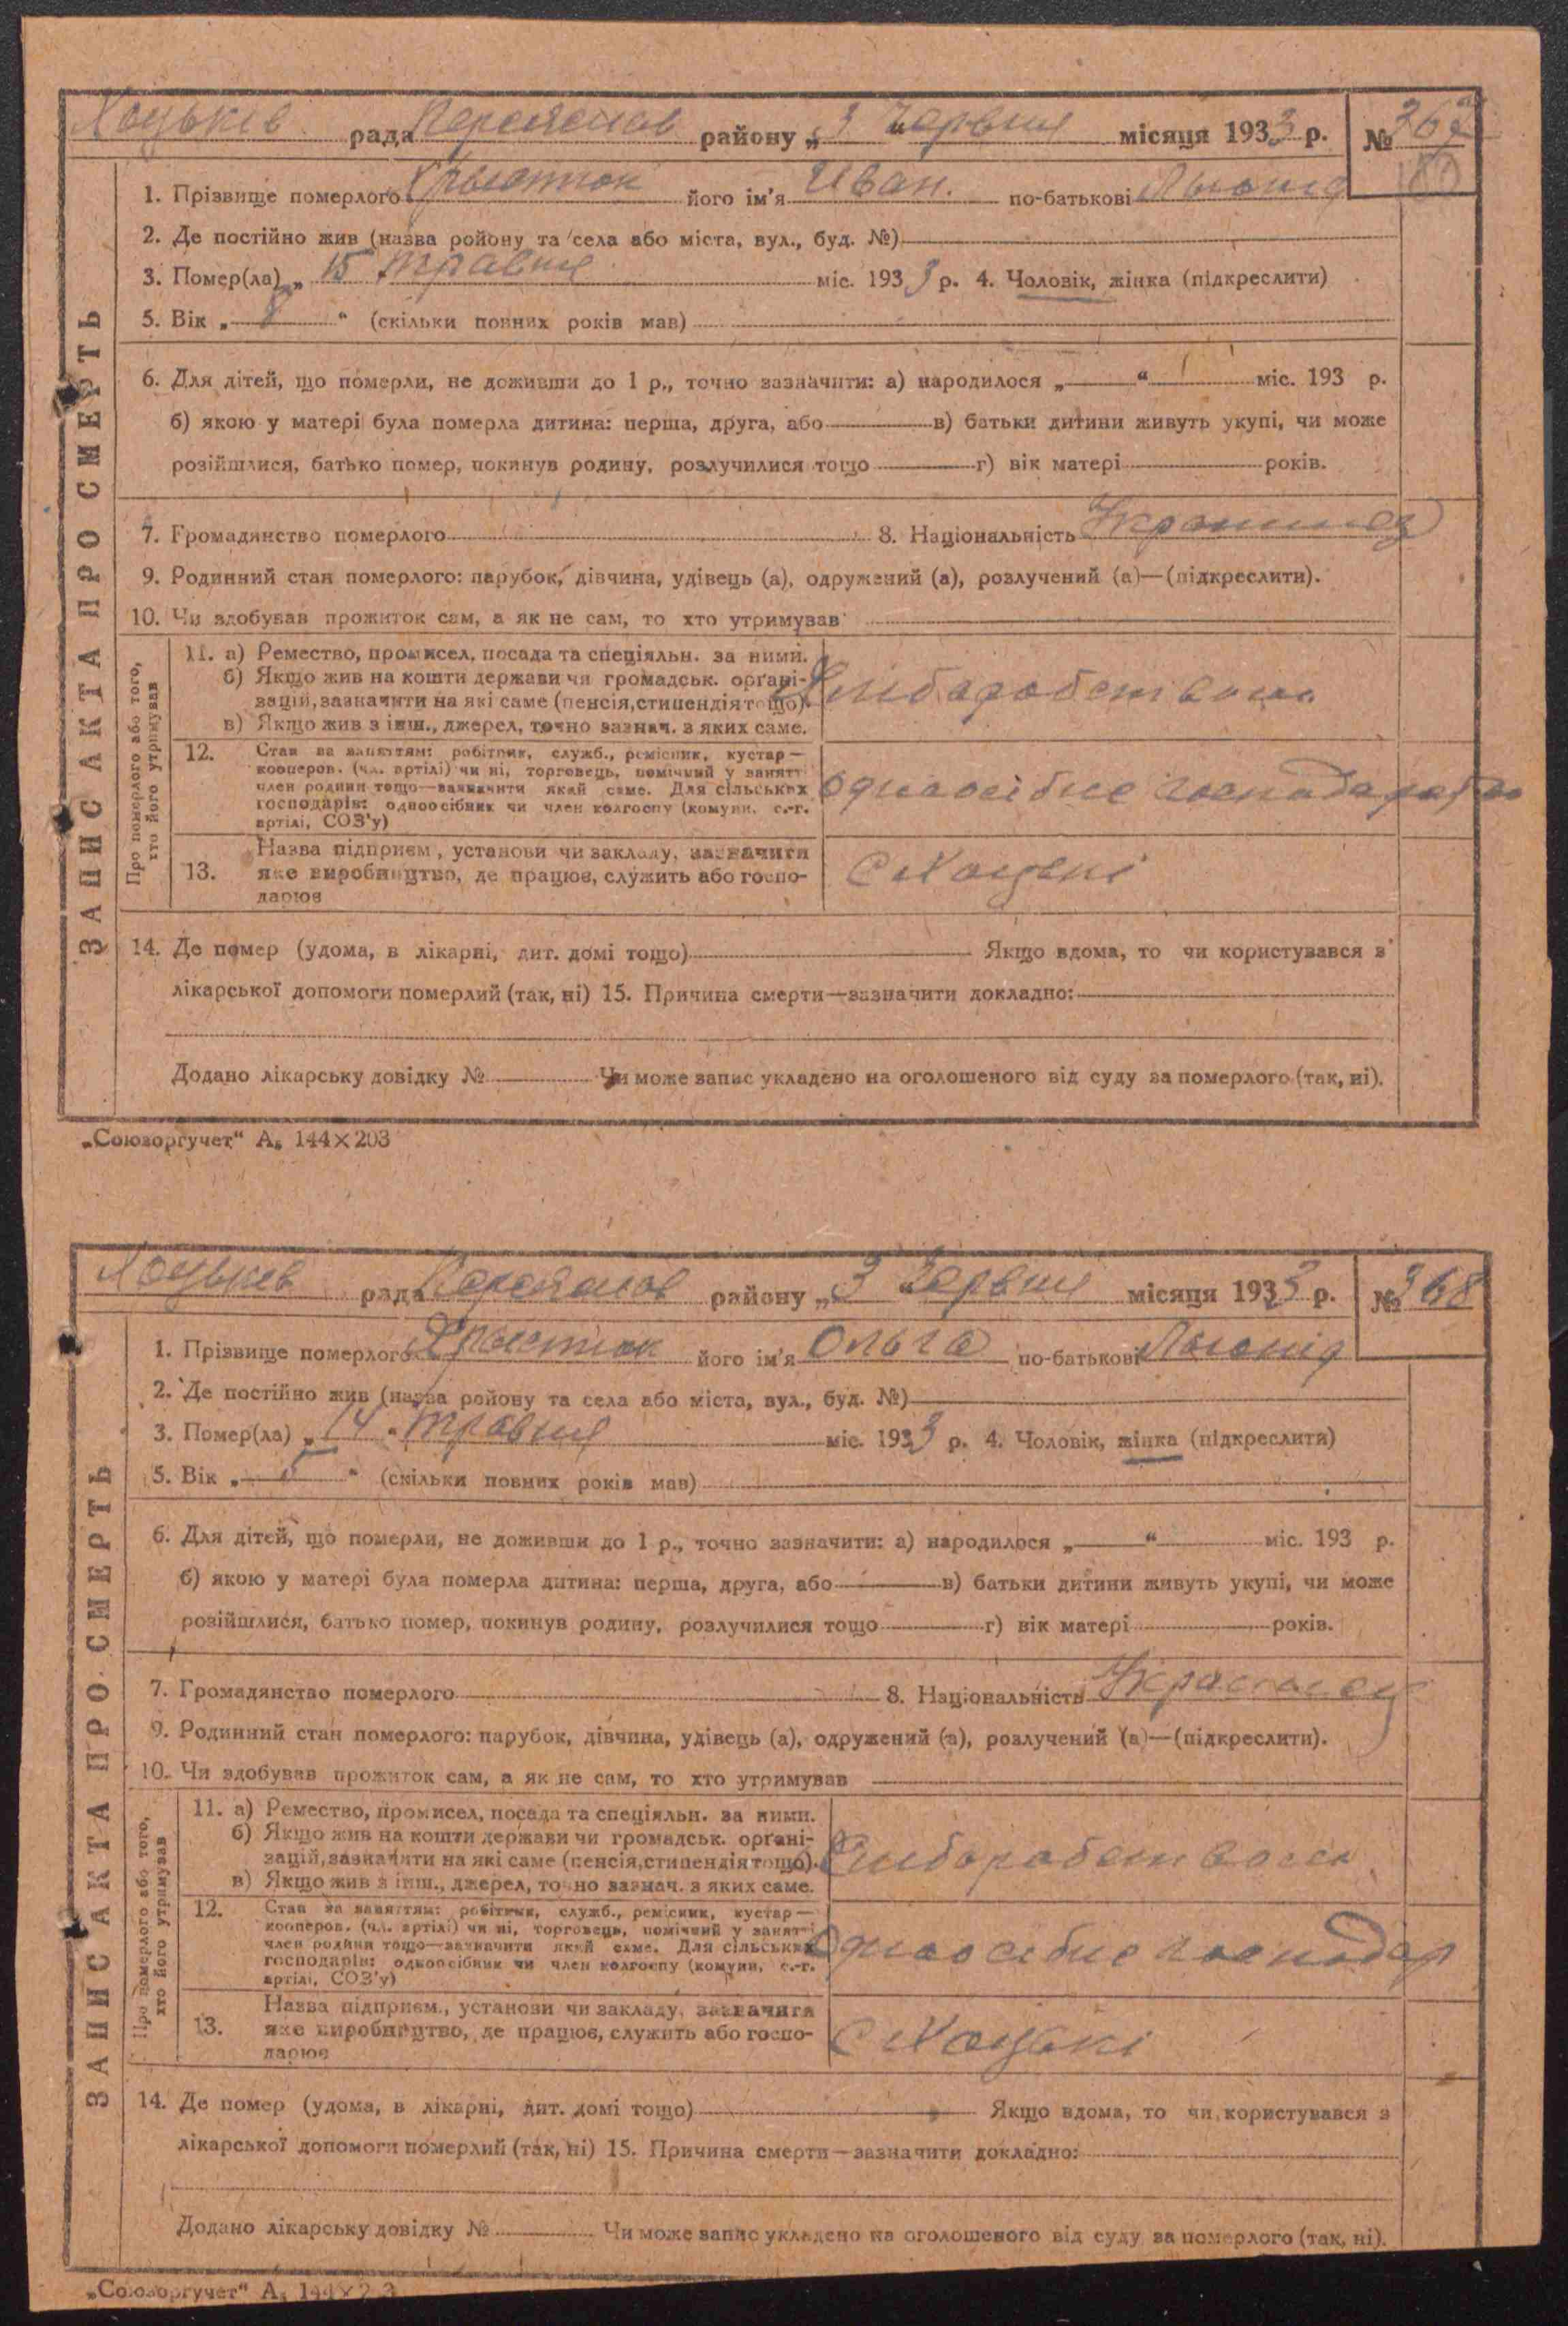 Хоцьків рада Переяслов району „3“ Червня місяця 1933 р. № 367
1. Прізвище померлого його ім'я Иван. по-батькові
2. Де постійно жив (назва ройону та села або міста, вул., буд. №)
3. Помер(ла) „15 травня міс. 1933 р. 4. Чоловік, жінка (підкреслити)
5. Вік „8“ (скільки повних років мав)
6. Для дітей, що померли, не доживши до 1 р., точно зазначити: а) народилося „ “ міс. 193 р.
б) якою у матері була померла дитина: перша, друга, або в) батьки дитини живуть укупі, чи може
розійшлися, батько помер, покинув родину, розлучилися тощо г) вік матері років.
7. Громадянство померлого 8. Національність Украинец
9. Родинний стан померлого: парубок, дівчина, удівець (а), одружений (а), розлучений (а)—(підкреслити).
10. Чи здобував прожиток сам, а як не сам, то хто утримував
ЗАПИС АКТА ПРО СМЕРТЬ
Про померлого або того,
хто його утримував
11. а) Ремество, промисел, посада та спеціяльн. за ними.
б) Якщо жив на кошти держави чи громадськ. органі-
зацій, зазначити на які саме (пенсія, стипендія тощо).
в) Якщо жив з інш., джерел, точно зазнач. з яких саме.
12. Стан за заняттям: робітник, служб., ремісник, кустар—
кооперов. (чл. артілі) чи ні, торговець, помічний у занятт
член родини тощо—зазначити який саме. Для сільських
господарів: одноосібник чи член колгоспу (комуни, с.-г.
артілі, СОЗ'у)
одноосібне
13. Назва підприєм., установи чи закладу, зазначити
яке виробництво, де працює, служить або госпо-
дарює
С Хоцькі
14. Де помер (удома, в лікарні, дит. домі тощо) Якщо вдома, то чи користувався з
лікарської допомоги померлий (так, ні) 15. Причина смерти—зазначити докладно:
Додано лікарську довідку № Чи може запис укладено на оголошеного від суду за померлого (так, ні).
„Союзоргучет“ А₅ 144×203
Хоцьків рада Переяслов району „3“ Червня місяця 1933 р. № 368
1. Прізвище померлого його ім'я Ольга по-батькові
2. Де постійно жив (назва ройону та села або міста, вул., буд. №)
3. Помер(ла) „14“ травня міс. 1933 р. 4. Чоловік, жінка (підкреслити)
5. Вік „5“ (скільки повних років мав)
6. Для дітей, що померли, не доживши до 1 р., точно зазначити: а) народилося „ “ міс. 193 р.
б) якою у матері була померла дитина: перша, друга, або в) батьки дитини живуть укупі, чи може
розійшлися, батько помер, покинув родину, розлучилися тощо г) вік матері років.
7. Громадянство померлого 8. Національність Украинец
9. Родинний стан померлого: парубок, дівчина, удівець (а), одружений (а), розлучений (а)—(підкреслити).
10. Чи здобував прожиток сам, а як не сам, то хто утримував
ЗАПИС АКТА ПРО СМЕРТЬ
Про померлого або того,
хто його утримував
11. а) Ремество, промисел, посада та спеціяльн. за ними.
б) Якщо жив на кошти держави чи громадськ. органі-
зацій, зазначити на які саме (пенсія, стипендія тощо).
в) Якщо жив з інш., джерел, точно зазнач. з яких саме.
12. Стан за заняттям: робітник, служб., ремісник, кустар—
кооперов. (чл. артілі) чи ні, торговець, помічний у занятті
член родини тощо—зазначити який саме. Для сільських
господарів: одноосібник чи член колгоспу (комуни, с.-г.
артілі, СОЗ'у)
одноосібне господар
13. Назва підприєм., установи чи закладу, зазначити
яке виробництво, де працює, служить або госпо-
дарює
С Хоцькі
14. Де помер (удома, в лікарні, дит. домі тощо) Якщо вдома, то чи користувався з
лікарської допомоги померлий (так, ні) 15. Причина смерти—зазначити докладно:
Додано лікарську довідку № Чи може запис укладено на оголошеного від суду за померлого (так, ні).
„Союзоргучет“ А₅ 144×2 3